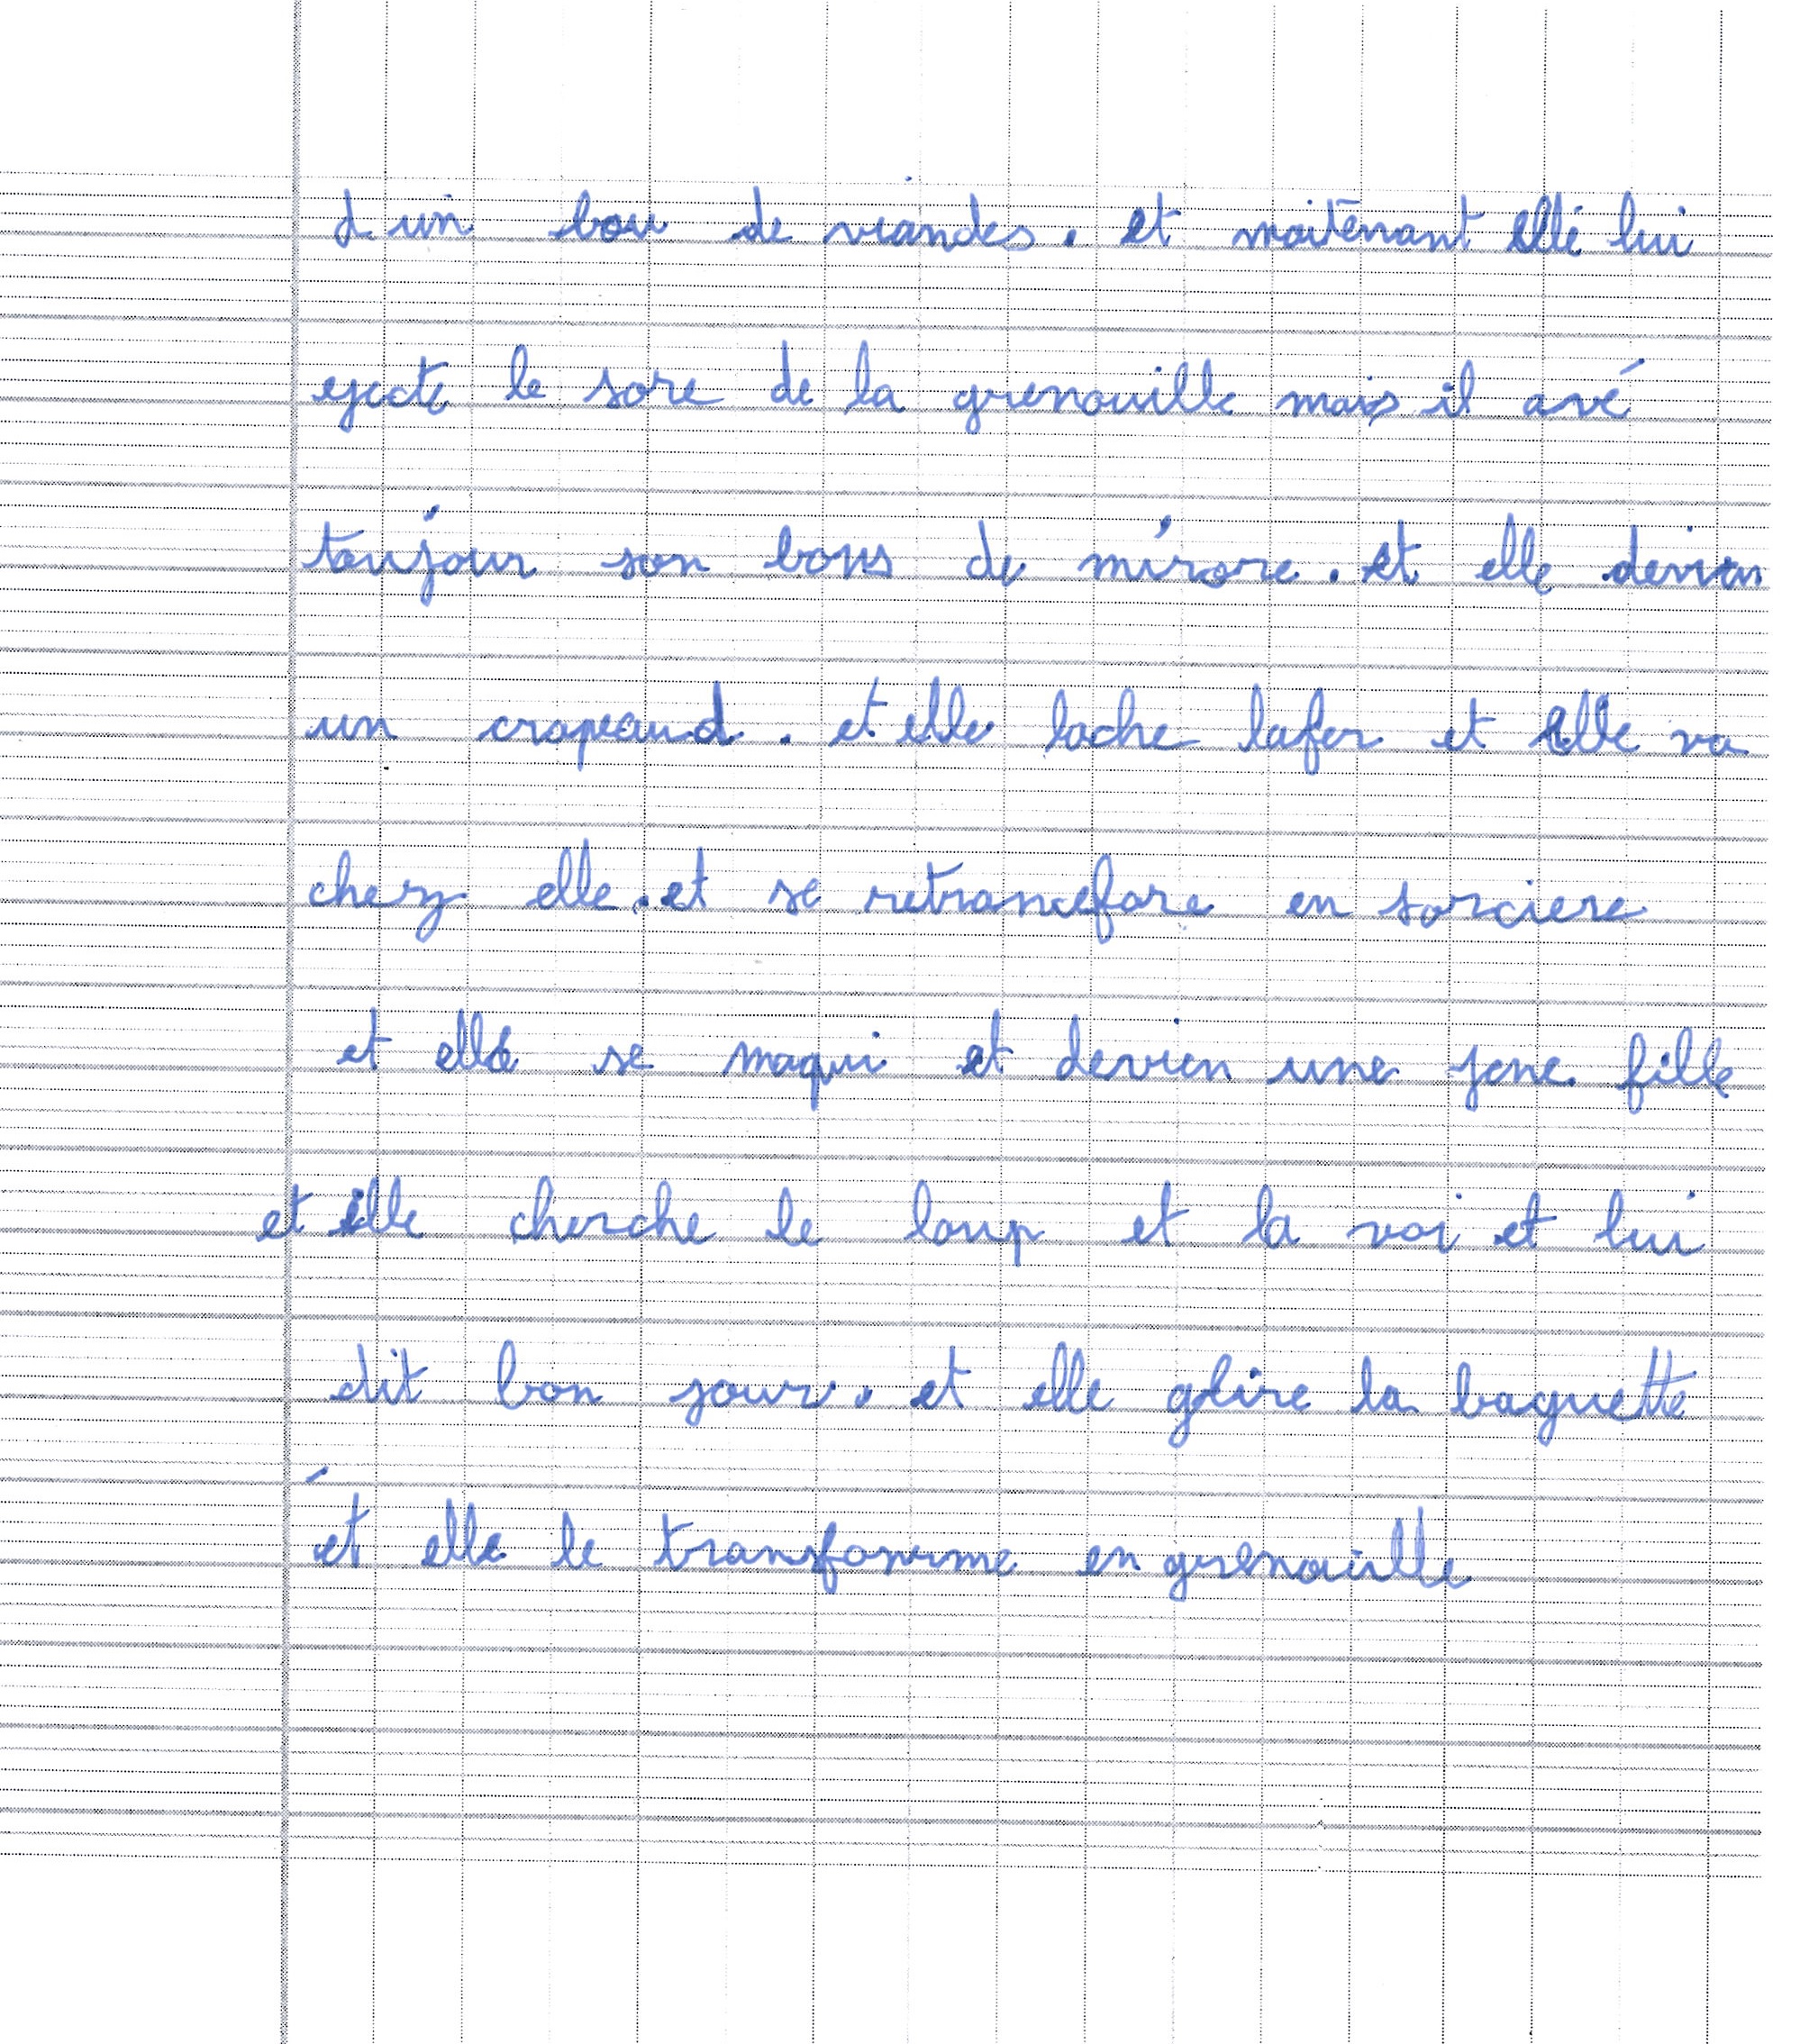 d un bou de viandes. et maitenant elle lui
ejecte le sore de la grenouille mais il avé
toujour son bous de mirore. et elle devien
un crapeaud. et elle lache lafer et elle va
chez elle. et se retrancefore en sorciere
et elle se maqui et devien une jene fille
et elle cherche le loup et la voi et lui
dit bon jour. et elle glire la baguette
et elle le transforme en grenouille